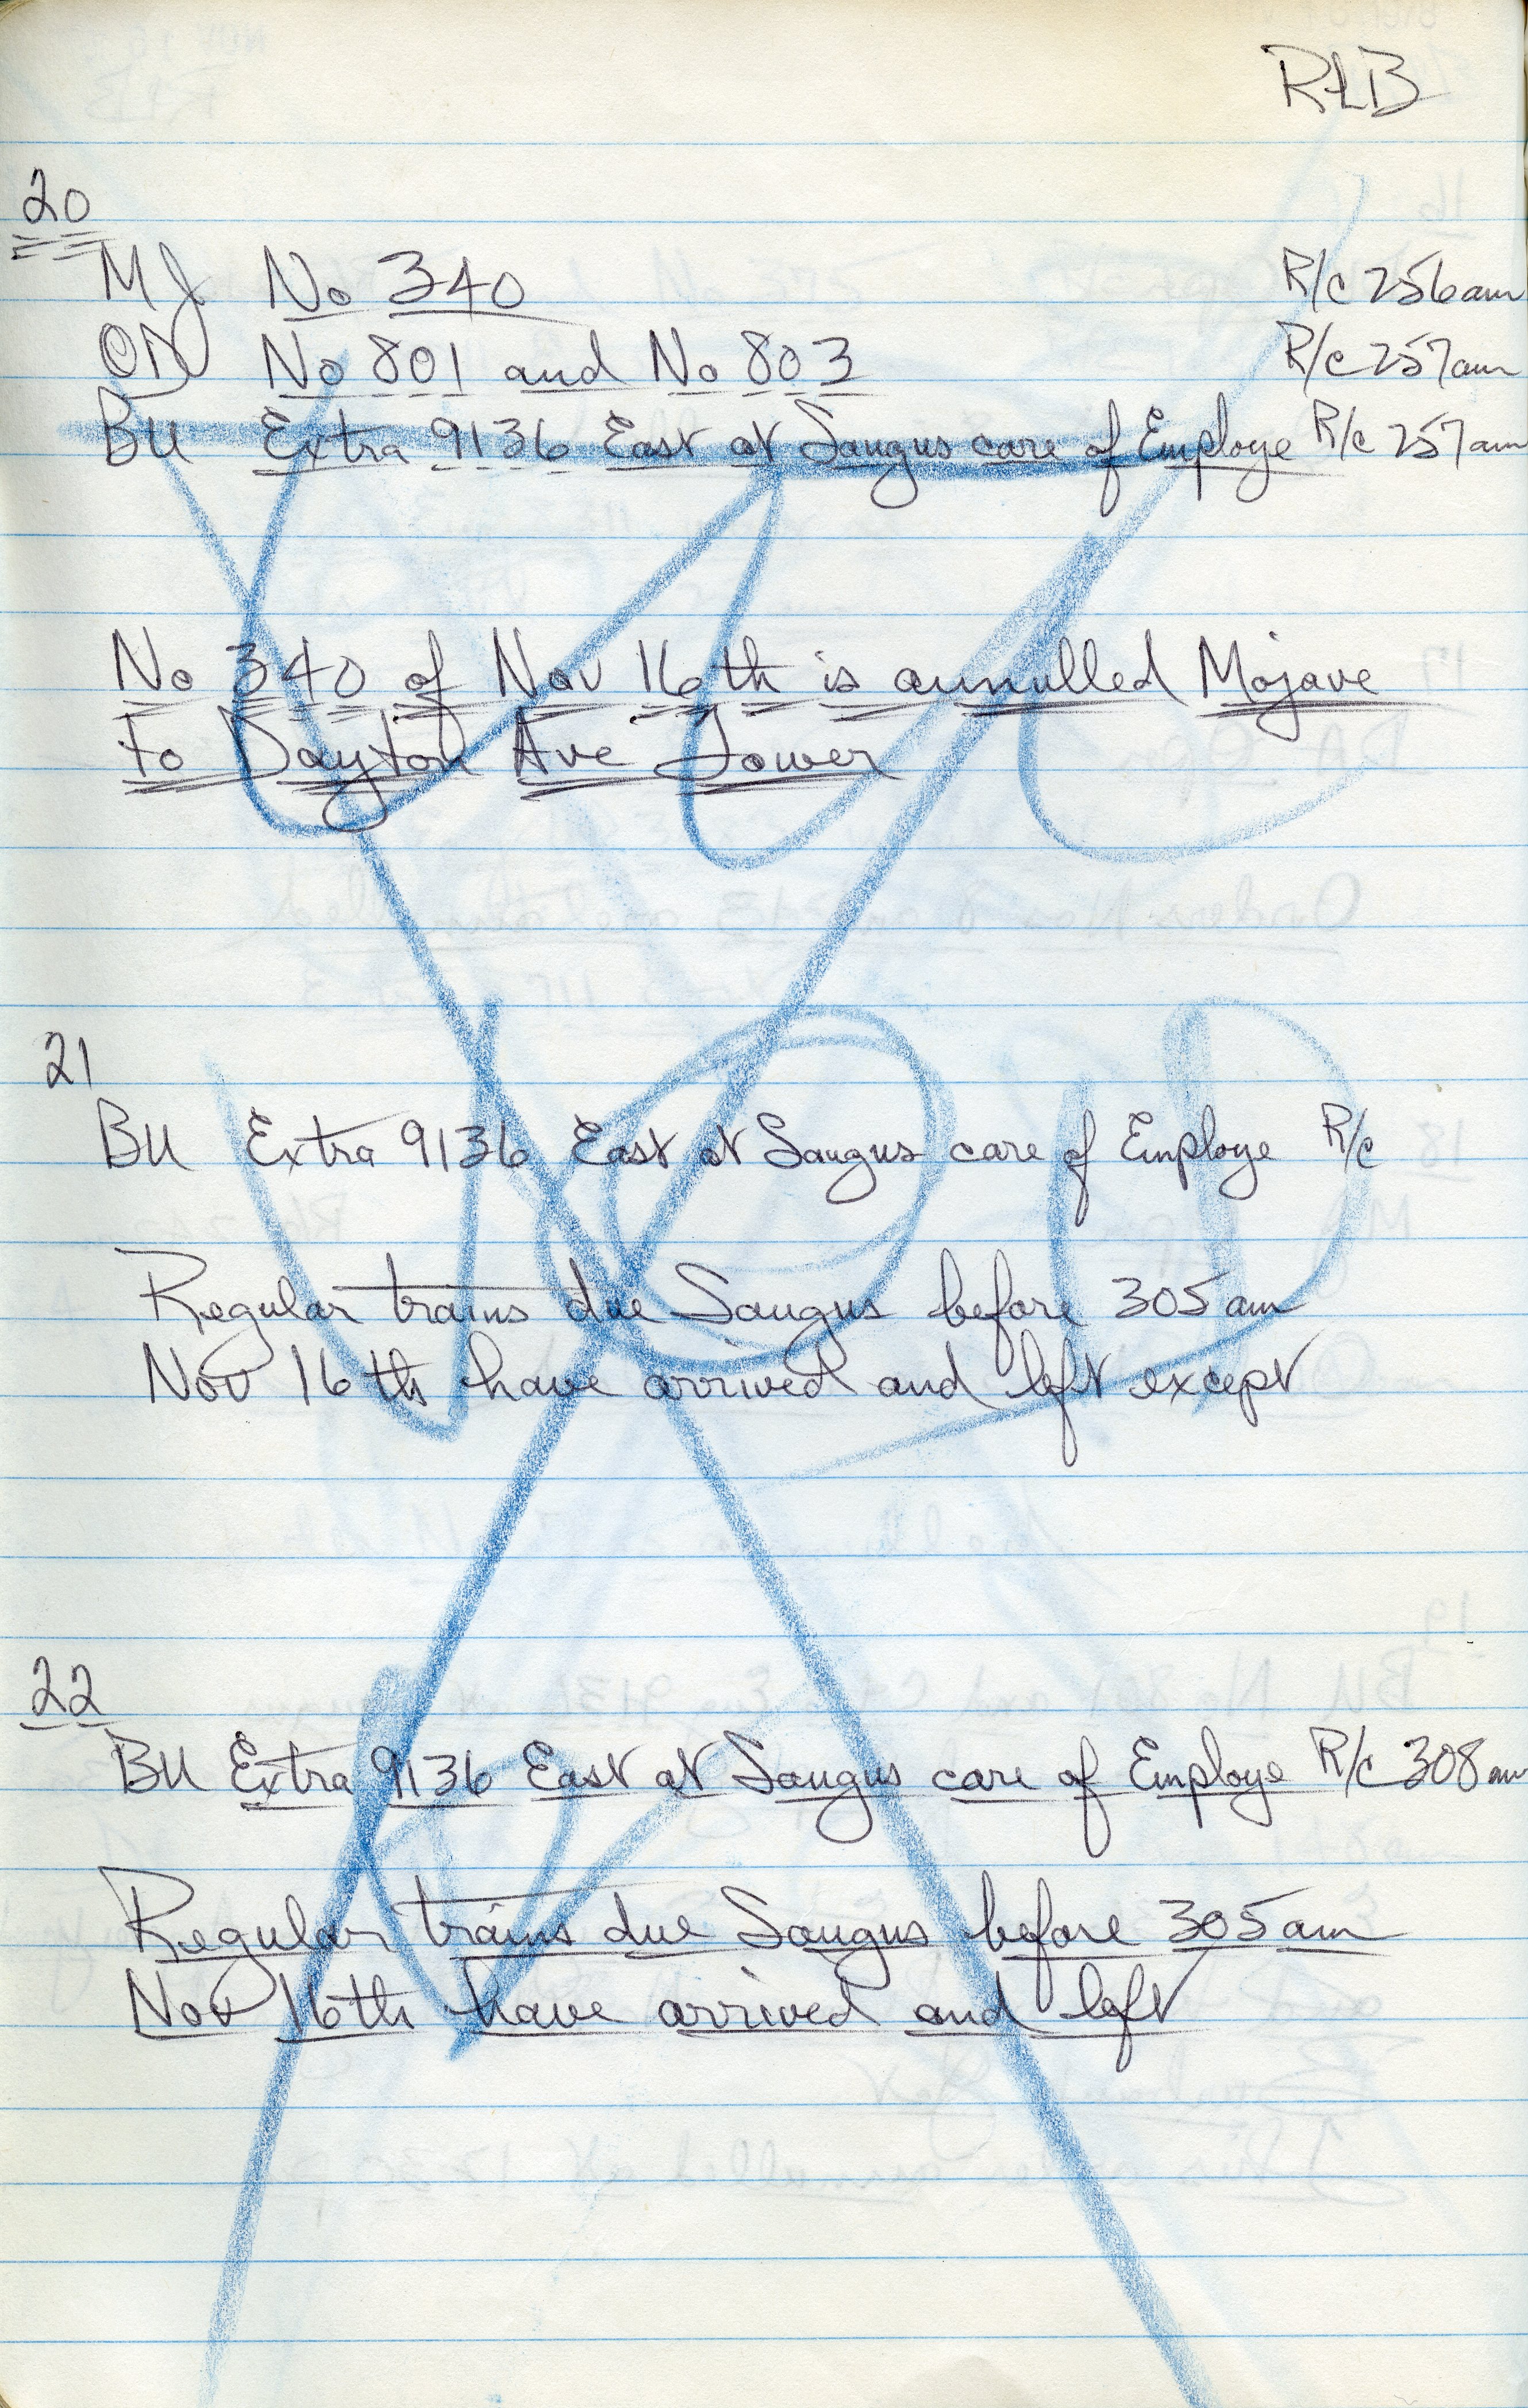 RLB
20
MJ No 340 R/c 256am
OD No 801 and No 803 R/c 257am
BU Extra 9136 East at Saugus care of Employe R/c 257am
No 340 of Nov 16th is annulled Mojave
to Dayton Ave Tower
21
BU Extra 9136 East at Saugus care of Employe R/c
Regular trains due Saugus before 305am
Nov 16th have arrived and left except
22
BU Extra 9136 East at Saugus care of Employe R/c 308am
Regular trains due Saugus before 305am
Nov 16th have arrived and left